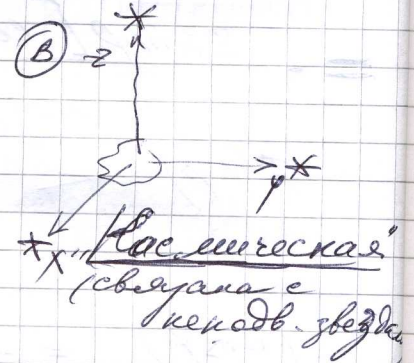 В
z
y
x
"Космическая"
(связана с
неподв. звёздам